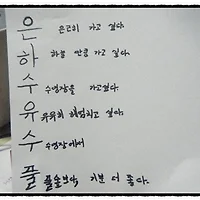 은 은근히 가고 싶다.
하 하늘 만큼 가고 싶다.
수 수영장을 가고싶다.
유 유유히 헤엄치고 싶다.
수 수영장에서
풀 풀숲보다, 기분 더 좋다.